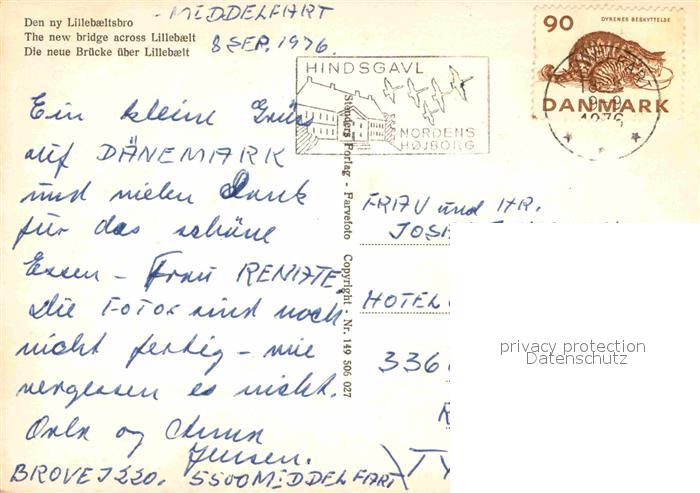 Den ny Lillebæltsbro
The new bridge across Lillebælt
Die neue Brücke über Lillebælt
MIDDELFART
8 SEP. 1976.
HINDSGAVL
NORDENS
HØJBORG
90
DYRENES BESKYTTELSE
DANMARK
1976
Ein kleine Grüss
auf DÄNEMARK
und vielen Dank
für das schöne
Essen - Frau RENATE.
Die FOTOS sind noch
nicht fertig - wie
vergessen es nicht.
og Anna
Jensen.
BROVEJ 220. 5500 MIDDELFART
Stenders Forlag - Farvefoto Copyright - Nr. 149 506 027
FRAU und HR.
HOTEL
336
privacy protection
Datenschutz